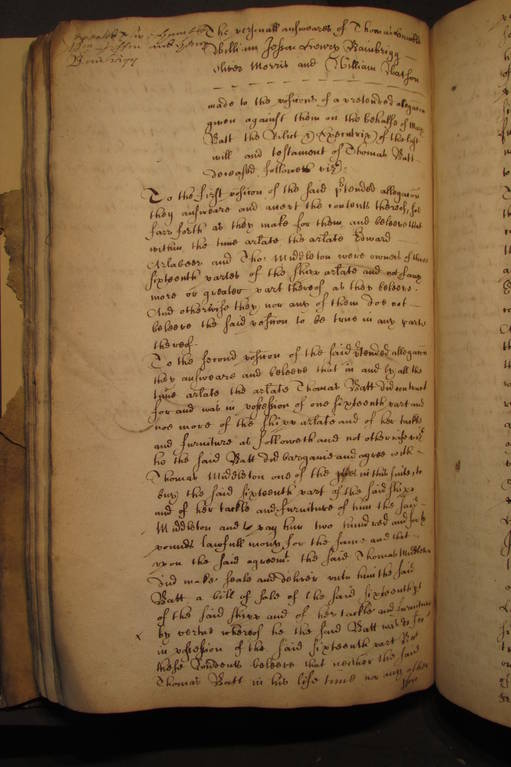 The personall answeares of Thomas
William Jesson Henery Bambrigg
Oliver Morris and William
made to the posicons of a pretended allegacon
given against them on the behalfe of Mary
Batt the Relict & Executrix of the last
will and testament of Thomas Batt
deceased followeth vizt
To the first posicon of the said pretended allegacon
they answeare and averr the contents thereof, soe
farr forth as they make for them, and beleeve that
within the time arlate the arlate Edward
and Tho: Middleton were owners of three
sixteenth partes of the shipp arlate and noe
more or greater part thereof as they beleeve.
And otherwise they nor any of them doe not
beleeve the said posicon to be true in any parte
thereof.
To the second posicon of the said pretended allegacon
they answeare and beleeve that in and by all the
time arlate the arlate Thomas Batt did contract
for and was in possession of one sixteenth part and
noe more of the shipp arlate and of her tackle
and furniture as followeth and not otherwise vizt
he the said Batt did bargaine and agree with
Thomas Middleton one of the in this suite, to
buy the said sixteenth part of the said shipp
and of her tackle and furniture of him the said
Middleton and to pay him two hundred and
pounds lawfull money for the same and that
upon the said agreemt. the said Thomas Middleton
did make seale and deliver unto him the said
Batt a bill of sale of the said sixteenth pt
of the said shipp and of her tackle and furniture
by vertue whereof he the said Batt was
in possession of the said sixteenth part But
these Rondents beleeve that neither the said
Thomas Batt in his life time nor any other